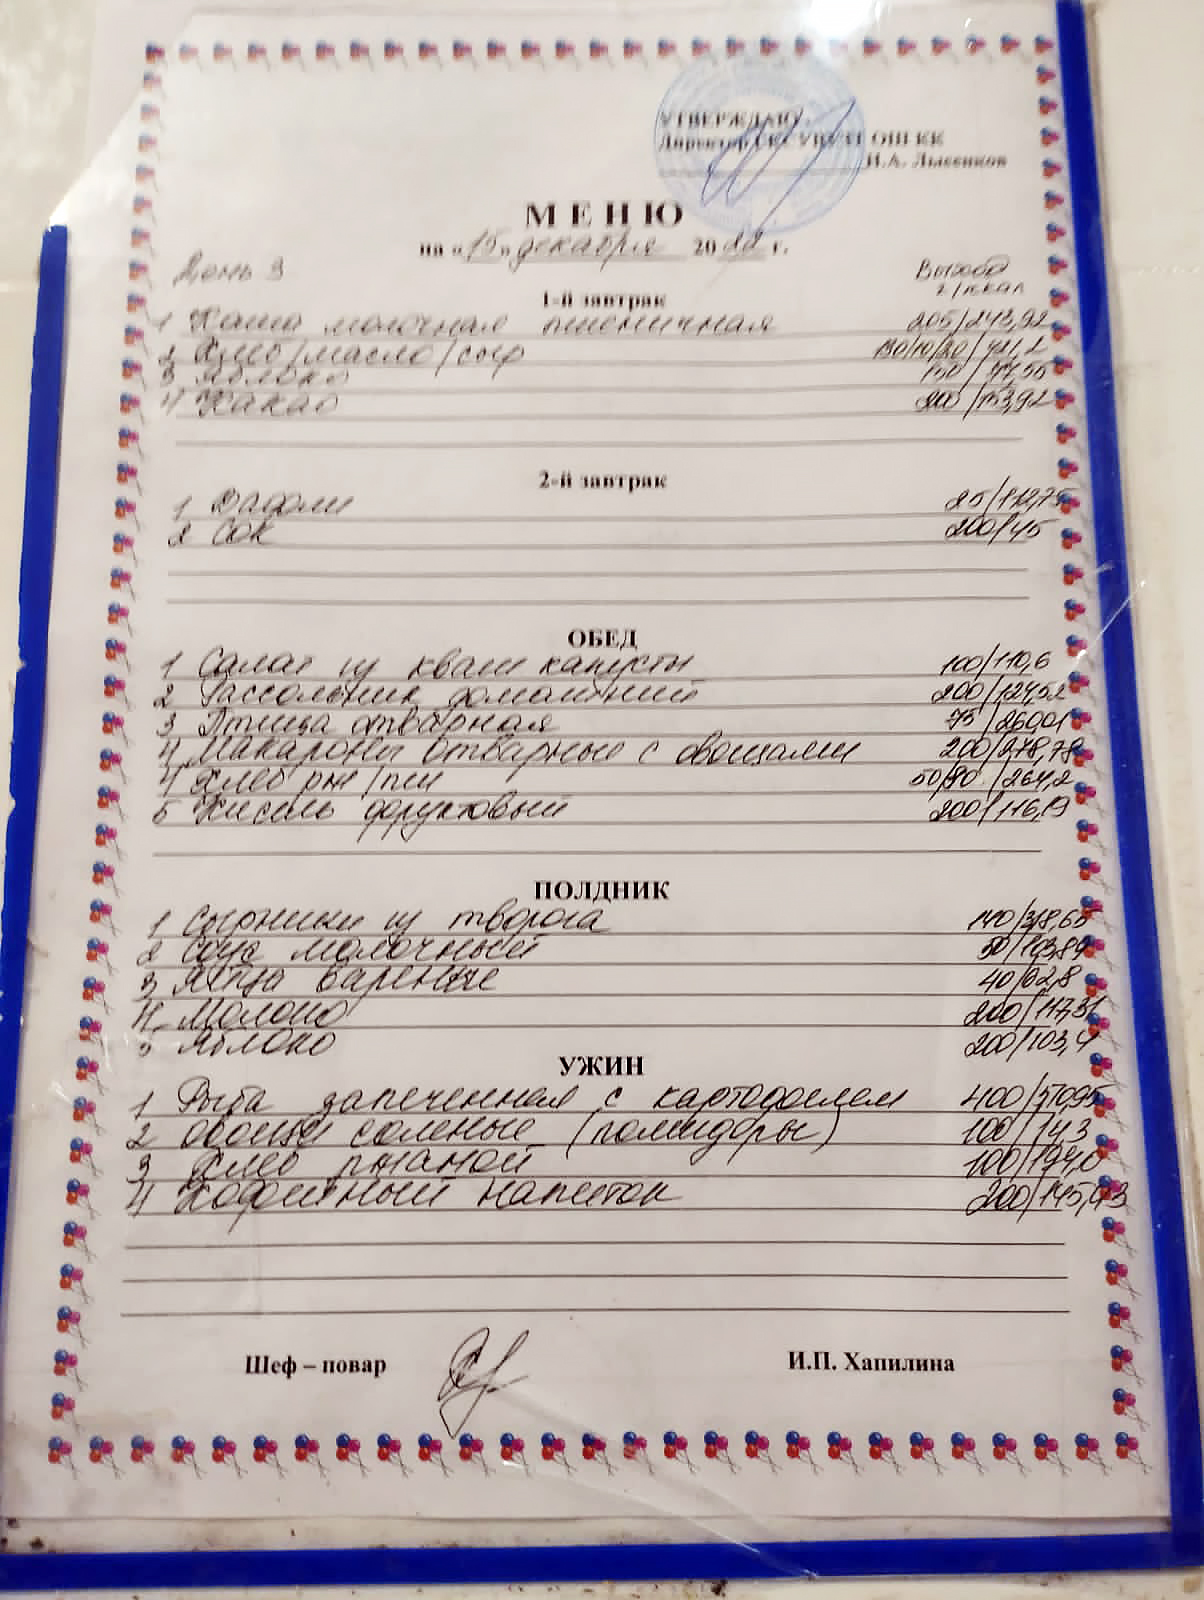 УТВЕРЖДАЮ
Директор ОШ КК
И.А. Лысенков
МЕНЮ
на «15» декабря 2022 г.
День 3
Выход
г/ккал
1-й завтрак
1 Каша молочная пшеничная 205/243,92
2 Хлеб/масло/сыр
3 Яблоко
4 Какао 200/153,92
2-й завтрак
1 Вафли 25/112,75
2 Сок 200/45
ОБЕД
1 Салат из кваш капусты 100/110,6
2 Рассольник домашний 200/124,52
3 Птица отварная 75/260,01
4 Макароны отварные с овощами 200/278,78
4 Хлеб рж/пш 50/80/264,2
5 Кисель фруктовый 200/116,19
ПОЛДНИК
1 Сырники из творога 140/318,65
2 Соус молочный 50/103,89
3 Яйца вареные 40/62,8
4 Молоко 200/117,31
5 Яблоко 200/103,4
УЖИН
1 Рыба запеченная с картофелем 400/570,95
2 Овощи соленые (помидоры) 100/14,3
3 Хлеб ржаной 100/194,0
4 Кофейный напиток 200/145,43
Шеф – повар И.П. Хапилина